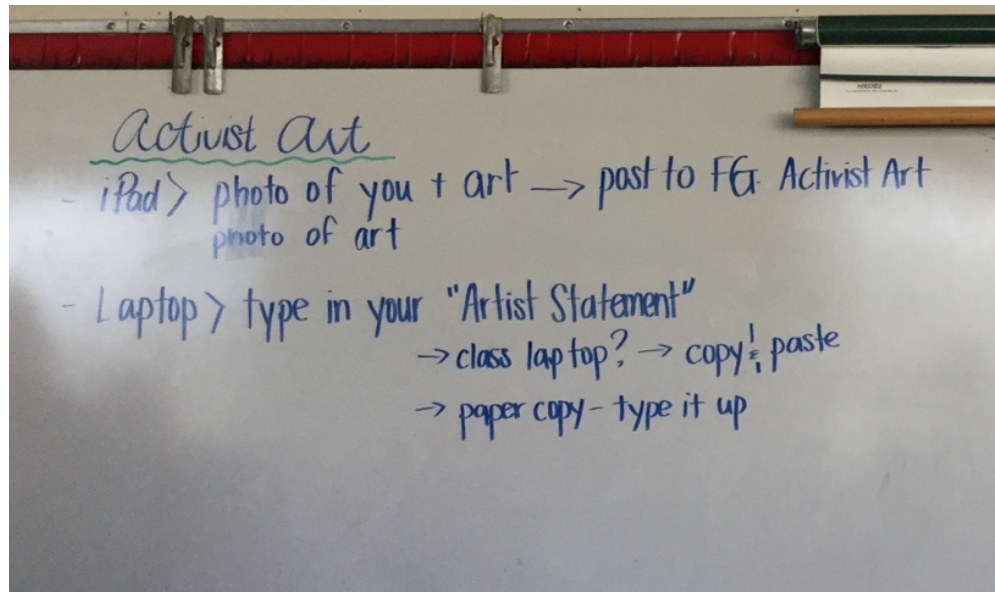 Activist Art
- iPad > photo of you + art → post to FG Activist Art
photo of art
- Laptop > type in your "Artist Statement"
→ class laptop? → copy & paste
→ paper copy - type it up